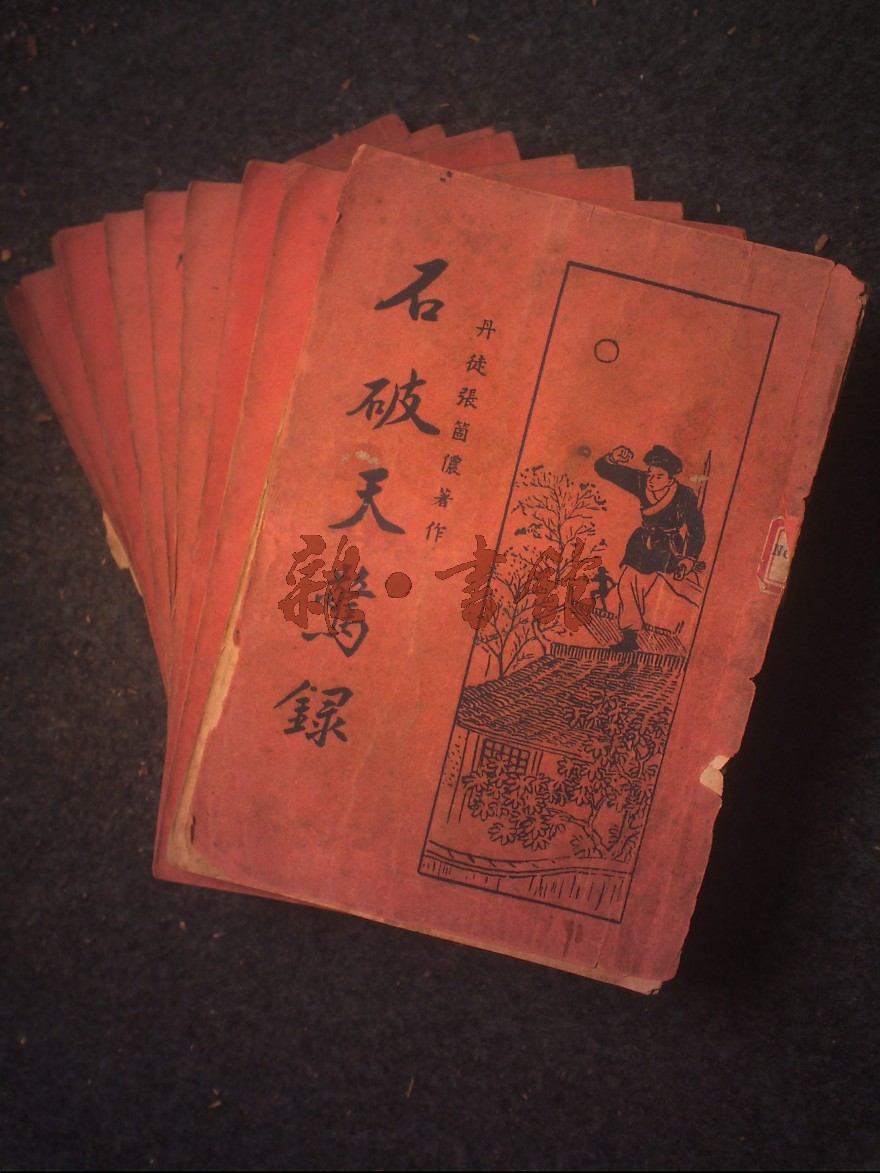 石破天驚録
丹徒張箇儂著作
雜·書館
No